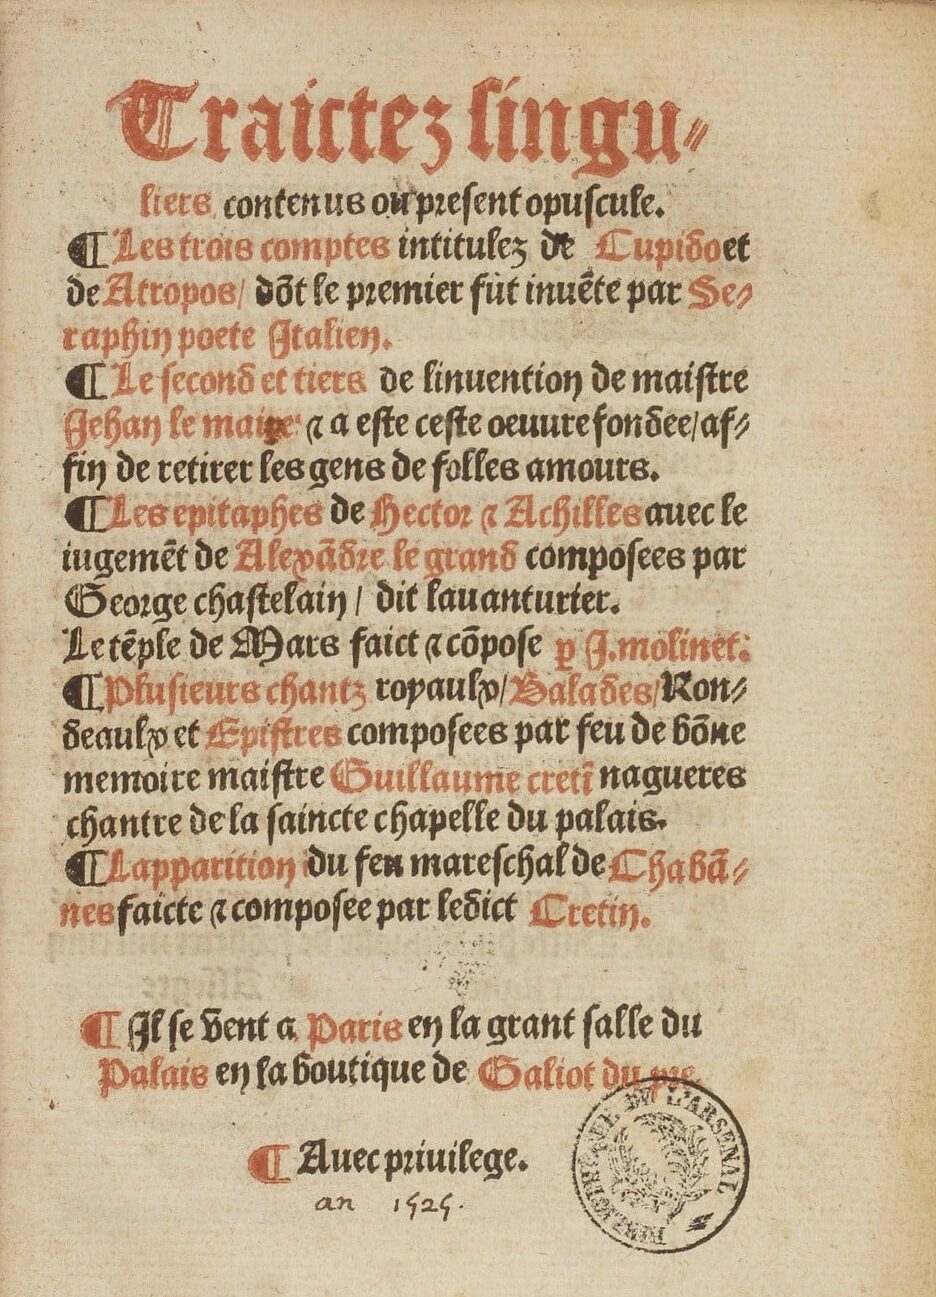 Traictez singu-
liers contenus ou present opuscule.
¶ Les trois comptes intitulez de Cupido et
de Atropos / dõt le premier fut inuẽte par Se-
raphin poete Italien.
¶ Le second et tiers de linuention de maistre
Jehan le maire: ⁊ a este ceste oeuure fondee / af-
fin de retirer les gens de folles amours.
¶ Les epitaphes de Hector ⁊ Achilles auec le
iugemẽt de Alexãdre le grand composees par
George chastelain / dit lauanturier.
Le tẽple de Mars faict ⁊ cõpose ꝑ J. molinet:
¶ Plusieurs chantz royaulx / Balades / Ron-
deaulx et Epistres composees par feu de bõne
memoire maistre Guillaume cretĩ nagueres
chantre de la saincte chapelle du palais.
¶ Lapparition du feu mareschal de Chabã-
nes faicte ⁊ composee par ledict Cretin.
¶ Il se vent a Paris en la grant salle du
Palais en la boutique de Galiot du pre.
¶ Auec priuilege.
an 1525.
BIBLIOTHEQUE DE L'ARSENAL